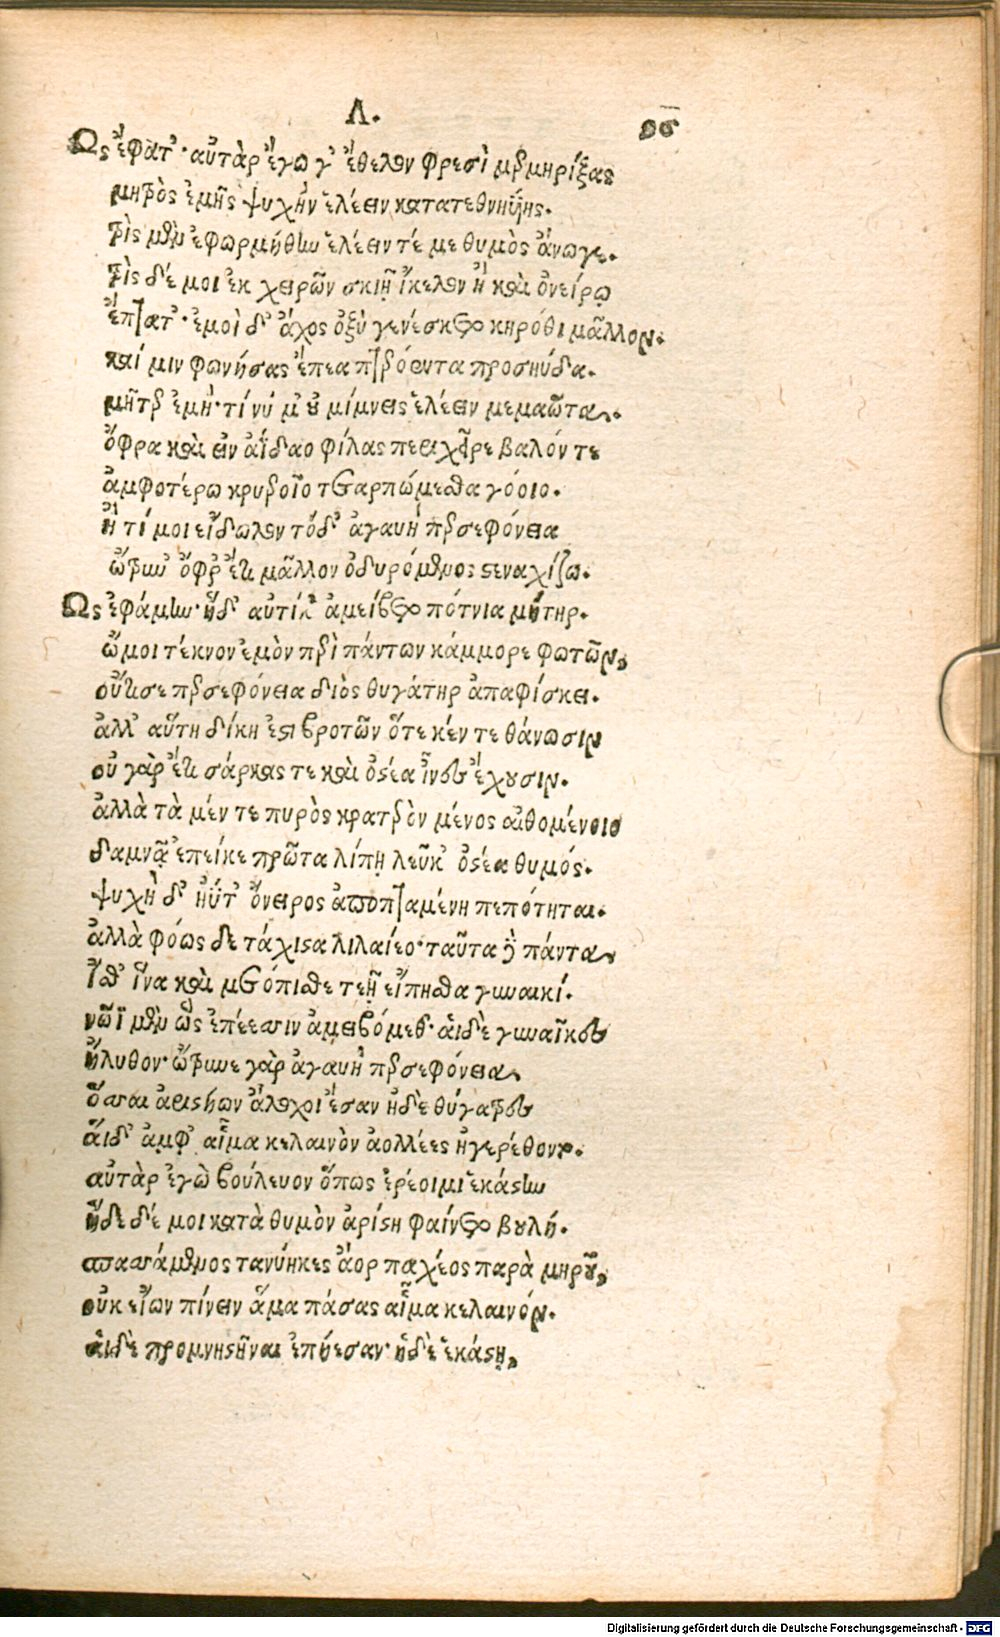 Λ.
Ως ἔφατ'· αὐτὰρ ἔγω γ' ἔθελον φρεσὶ μερμηρίξας
μητρὸς ἐμῆς ψυχὴν ἑλέειν κατατεθνηυίης.
τρὶς μὲν ἐφωρμήθην ἑλέειν τέ με θυμὸς ἄνωγε.
τρὶς δέ μοι ἐκ χειρῶν σκιῇ ἴκελον ἢ καὶ ὀνείρῳ
ἔπτατ'· ἐμοὶ δ' ἄχος ὀξὺ γενέσκετο κηρόθι μᾶλλον.
καί μιν φωνήσας ἔπεα πτερόεντα προσηύδα.
μῆτερ ἐμή· τί νύ μ' οὐ μίμνεις ἑλέειν μεμαῶτα.
ὄφρα καὶ εἰν ἀΐδαο φίλας περὶ χεῖρε βαλόντε
ἀμφοτέρω κρυεροῖο τεταρπώμεσθα γόοιο.
ἦ τί μοι εἴδωλον τόδ' ἀγαυὴ περσεφόνεια
ὤτρυν' ὄφρ' ἔτι μᾶλλον ὀδυρόμενος στεναχίζω.
Ως ἐφάμην· ἡδ' αὐτίκ' ἀμείβετο πότνια μήτηρ.
ὤμοι τέκνον ἐμὸν περὶ πάντων κάμμορε φωτῶν,
οὔτι σε περσεφόνεια διὸς θυγάτηρ ἀπαφίσκει.
ἀλλ' αὕτη δίκη ἐστὶ βροτῶν ὅτε κέν τε θάνωσιν
οὐ γὰρ ἔτι σάρκας τε καὶ ὀστέα ἶνες ἔχουσιν.
ἀλλὰ τὰ μέν τε πυρὸς κρατερὸν μένος αἰθομένοιο
δαμνᾷ ἐπεί κε πρῶτα λίπῃ λεῦκ' ὀστέα θυμός.
ψυχὴ δ' ἠΰτ' ὄνειρος ἀποπταμένη πεπότηται.
ἀλλὰ φόως δὲ τάχιστα λιλαίεο· ταῦτα δὲ πάντα
ἴσθ' ἵνα καὶ μετόπισθε τεῇ εἴπησθα γυναικί.
νῶϊ μὲν ὣς ἐπέεσσιν ἀμειβόμεθ'· αἱ δὲ γυναῖκες
ἤλυθον· ὤτρυνε γὰρ ἀγαυὴ περσεφόνεια,
ὅσσαι ἀριστήων ἄλοχοι ἔσαν ἠδὲ θύγατρες
αἵδ' ἀμφ' αἷμα κελαινὸν ἀολλέες ἠγερέθοντο.
αὐτὰρ ἐγὼ βούλευον ὅπως ἐρέοιμι ἑκάστην
ἥδε δέ μοι κατὰ θυμὸν ἀρίστη φαίνετο βουλή.
σπασσάμενος τανύηκες ἄορ παχέος παρὰ μηροῦ,
οὐκ εἴων πίνειν ἅμα πάσας αἷμα κελαινόν.
αἱ δὲ προμνηστῖναι ἐπήεσαν· ἡδὲ ἑκάστη,
Digitalisierung gefördert durch die Deutsche Forschungsgemeinschaft - DFG